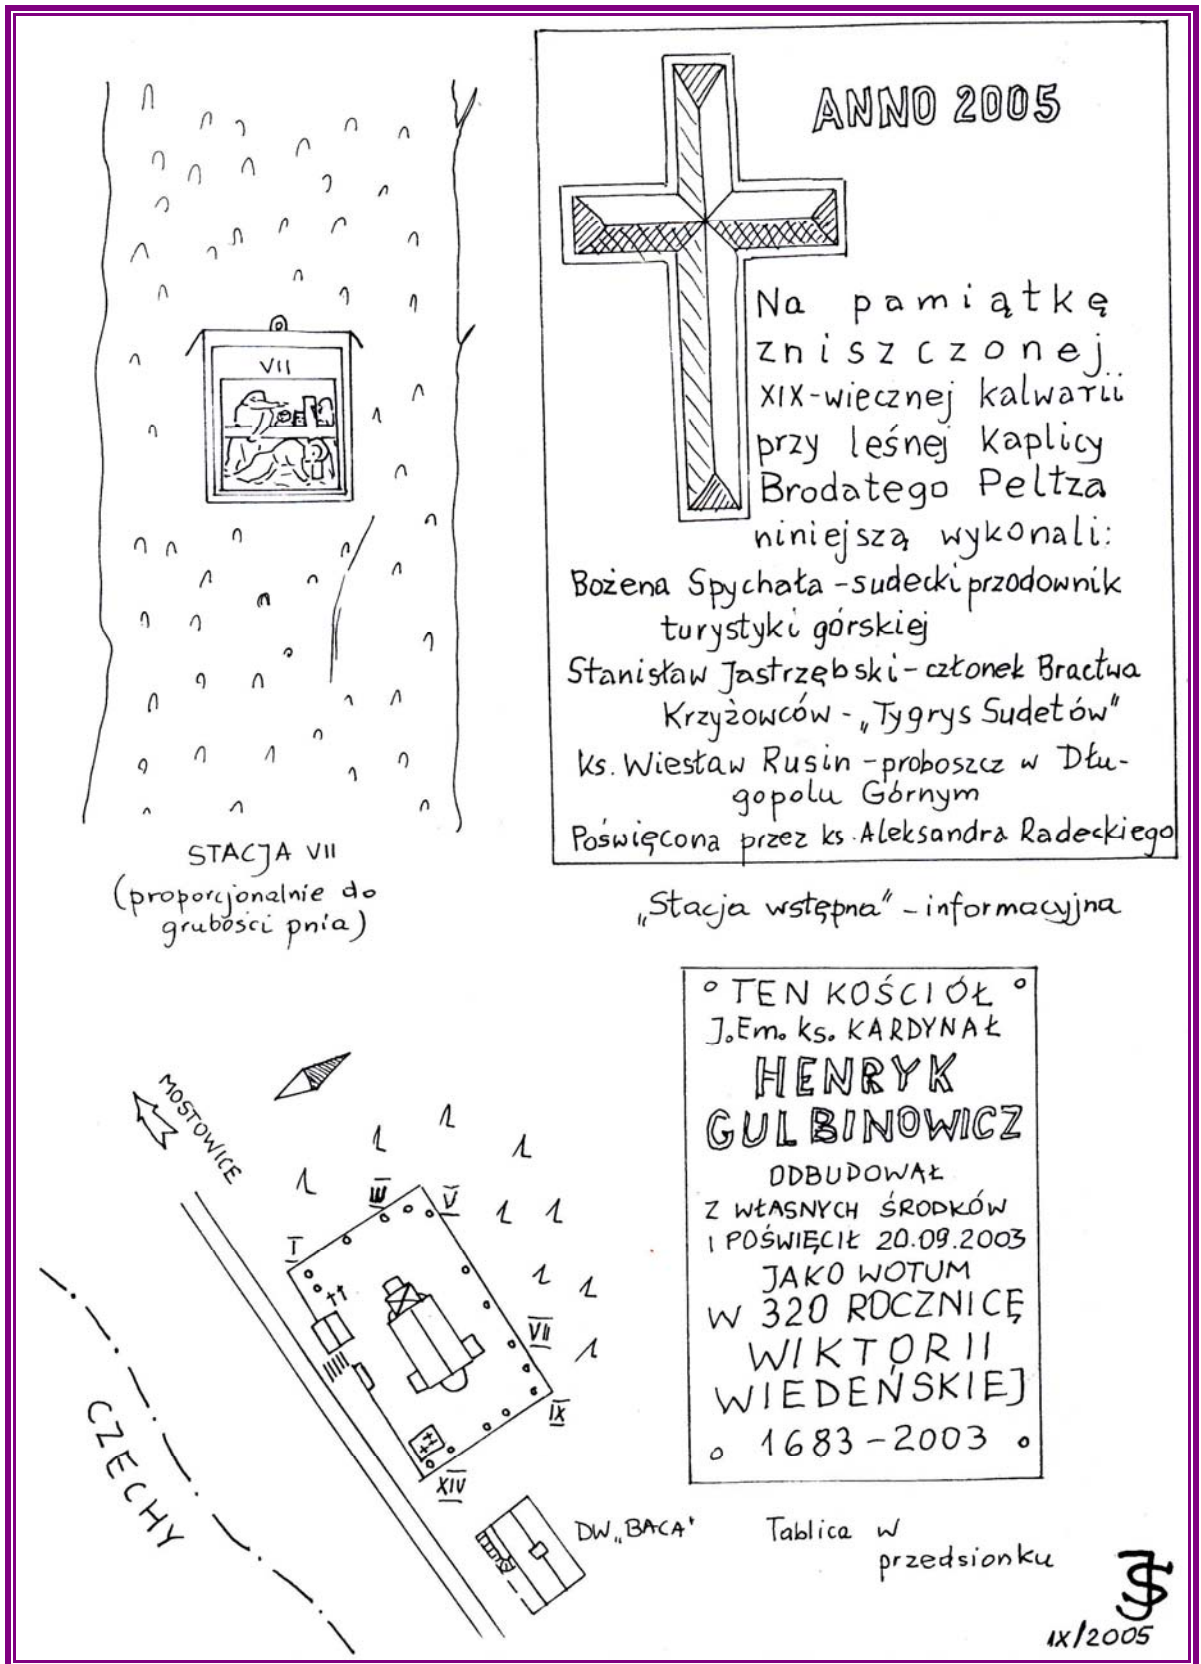 ANNO 2005
Na pamiątkę
zniszczonej
XIX-wiecznej kalwarii
przy leśnej kaplicy
Brodatego Peltza
niniejszą wykonali:
Bożena Spychała - sudecki przodownik
turystyki górskiej
Stanisław Jastrzębski - członek Bractwa
Krzyżowców - „Tygrys Sudetów"
ks. Wiesław Rusin - proboszcz w Dłu-
gopolu Górnym
Poświęcona przez ks. Aleksandra Radeckiego
„Stacja wstępna" - informacyjna
VII
STACJA VII
(proporcjonalnie do
grubości pnia)
° TEN KOŚCIÓŁ °
J.Em. ks. KARDYNAŁ
HENRYK
GULBINOWICZ
ODBUDOWAŁ
Z WŁASNYCH ŚRODKÓW
I POŚWIĘCIŁ 20.09.2003
JAKO WOTUM
W 320 ROCZNICĘ
WIKTORII
WIEDEŃSKIEJ
1683 - 2003
Tablica w
przedsionku
MOSTOWICE
I
V
VII
IX
XIV
CZECHY
DW„BACA"
IX/2005